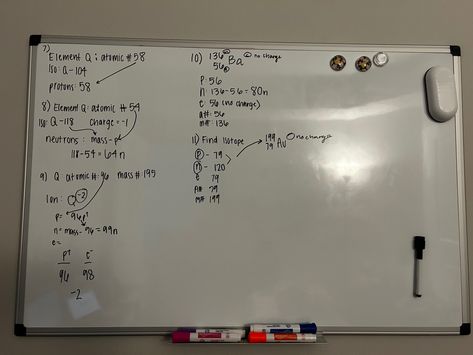 7)
Element Q: atomic # 58
Iso: Q-104
protons: 58
8) Element Q: atomic # 54
Iso: Q-118 charge = -1
neutrons: mass-p
118-54 = 64n
9) Q atomic #: 96 mass # 195
Ion: Q -2
p = 96p+
n = mass - 96 = 99n
e =
p+ e-
96 98
-2
10) 136 Ba no charge
56
p: 56
n: 136-56 = 80n
e: 56 (no charge)
a#: 56
m#: 136
11) Find Isotope
P - 79
n - 120
e 79
A# 79
m# 199
199 Au no charge
79